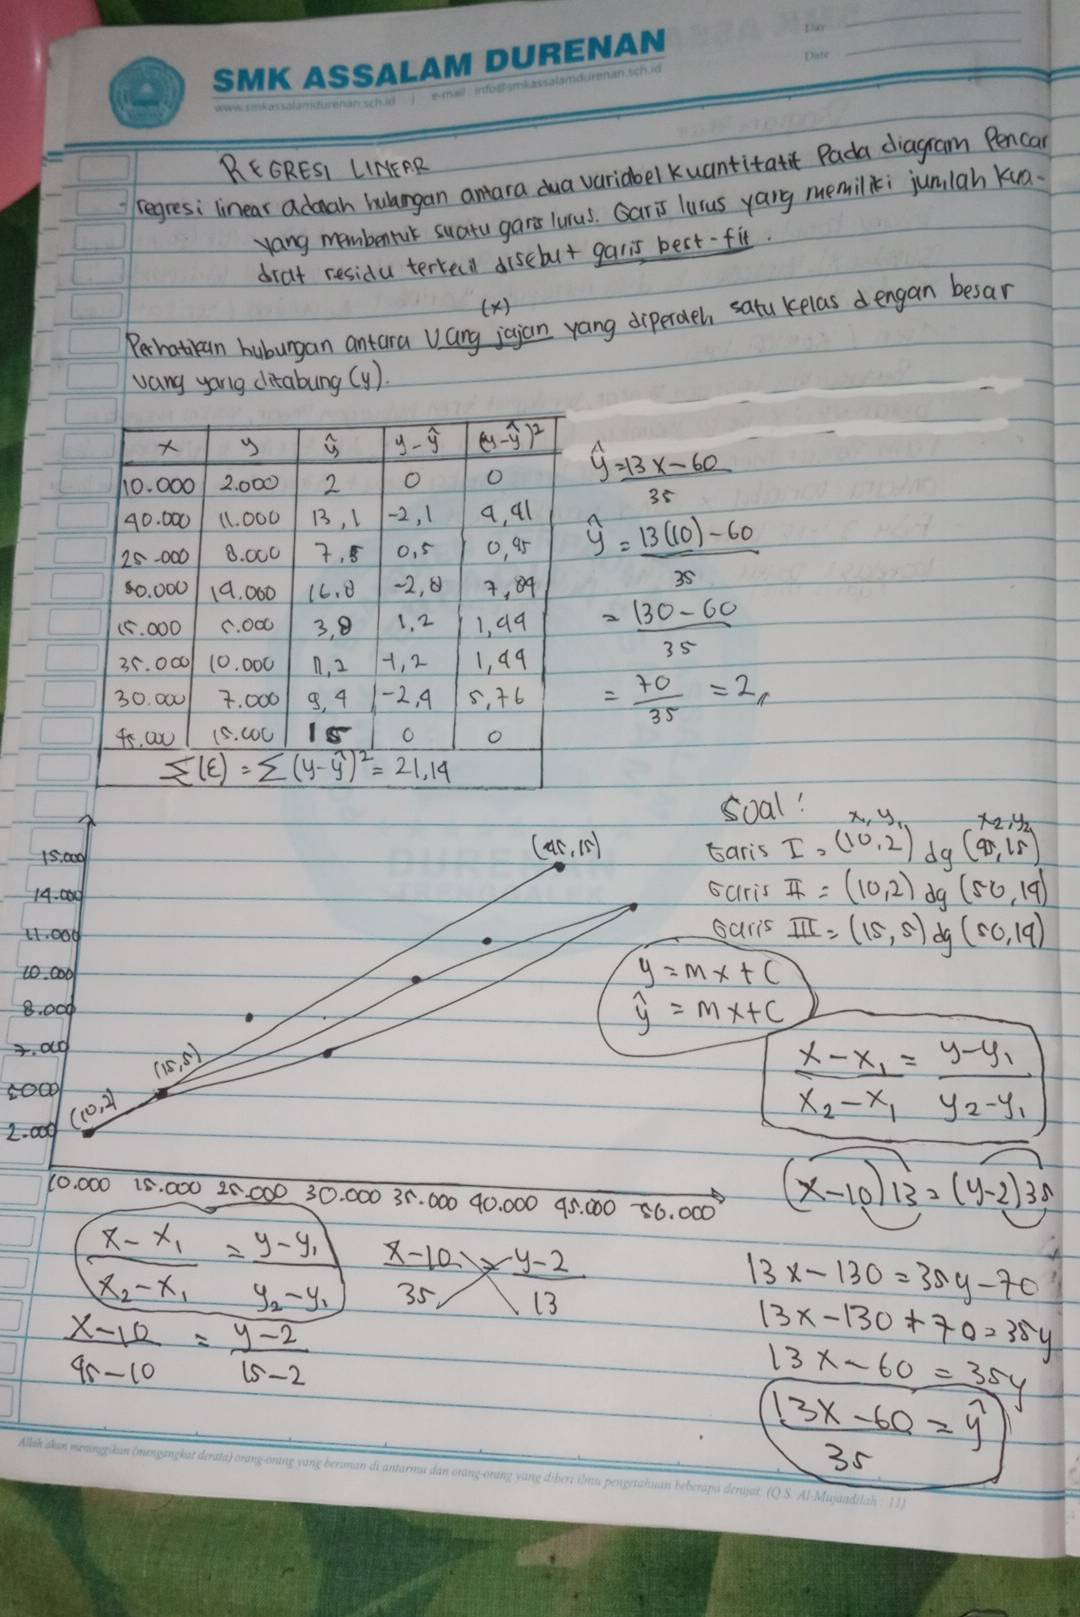 SMK ASSALAM DURENAN
www.smkassalamdurenan.sch.id | e-mail : info@smkassalamdurenan.sch.id
Day
Date
REGRESI LINEAR
- regresi linear adalah hubungan antara dua variabel kuantitatif Pada diagram Pencar
yang membentuk suatu garis lurus. Garis lurus yang memiliki jumlah kua-
drat residu terkecil disebut garis best-fit.
(x)
Perhatikan hubungan antara Uang jajan yang diperoleh satu kelas dengan besar
uang yang ditabung (y).
x y ŷ y-ŷ (y-ŷ)²
10.000 2.000 2 0 0
40.000 11.000 13,1 -2,1 4,41
25.000 8.000 7,5 0,5 0,45
50.000 14.000 16,8 -2,8 7,84
15.000 5.000 3,8 1,2 1,44
35.000 10.000 11,2 -1,2 1,44
30.000 7.000 9,4 -2,4 5,76
45.000 15.000 15 0 0
Σ(E) = Σ (y-ŷ)² = 21,14
ŷ = 13x-60
35
ŷ = 13(10)-60
35
= 130-60
35
= 70 = 2,,
35
Soal!
x, y₁ x₂,y₂
Garis I = (10,2) dg (45,15)
Garis II = (10,2) dg (50,14)
Garis III = (15,5) dg (50,14)
y = mx+C
ŷ = mx+C
x-x₁ = y-y₁
x₂-x₁ y₂-y₁
15.000
14.000
11.000
10.000
8.000
7.000
5000
2.000
(45,15)
(15,5)
(10,2)
10.000 15.000 25.000 30.000 35.000 40.000 45.000 50.000
x-x₁ = y-y₁
x₂-x₁ y₂-y₁
x-10 = y-2
45-10 15-2
x-10 = y-2
35 13
(x-10)13 = (y-2)35
13x-130 = 35y-70
13x-130+70=35y
13x-60 = 35y
13x-60 = ŷ
35
Allah akan meninggikan (mengangkat derata) orang-orang yang beriman di antarmu dan orang-orang yang diberi ilmu pengetahuan beberapa derajat. (Q.S. Al-Mujaadilah : 11)